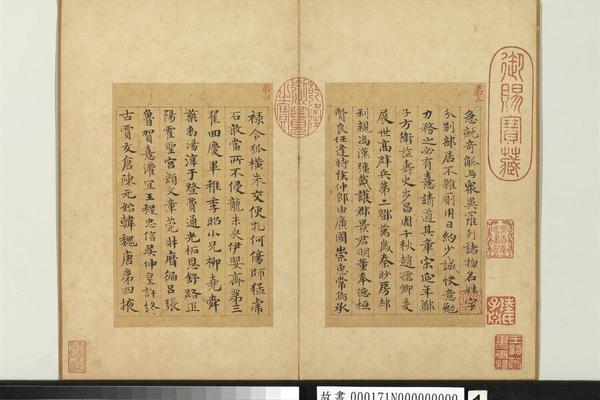 御賜寶藏
急就奇觚与衆異羅列諸物名姓字
分別部居不雜廁用日約少誠快意勉
力務之必有憙請道其章宋延年鄭
子方衛益壽史步昌周千秋趙孺卿爰
展世高辟兵第二鄧萬歲秦眇房郝
利親馮漢彊戴護郡景君明董奉德桓
賢良任逢時侯仲郎由廣國榮惠常烏承
乾隆御覽之寶
祿令狐橫朱交便孔何傷師猛虎
石敢當所不侵龍未央伊嬰齊第三
翟回慶畢稚季昭小兄柳堯舜
藥禹湯淳于登費通光柘恩舒路正
陽霍聖宮顏文章莞財曆偏呂張
魯賀憙灌宜王程忠信吳仲皇許終
古賈友倉陳元始韓魏唐第四掖
故書 000171N000000000